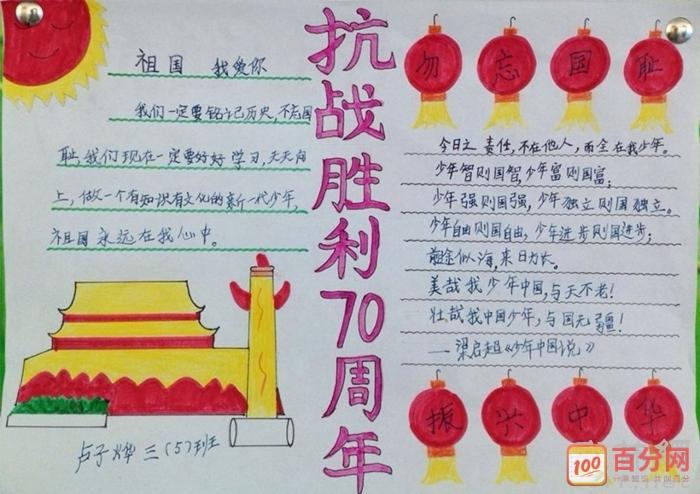 抗战胜利70周年
祖国 我爱你
我们一定要铭记历史,不忘国
耻,我们现在一定要好好学习,天天向
上,做一个有知识有文化的新一代少年,
祖国永远在我心中。
卢子烨 三(5)班
勿忘国耻
今日之责任,不在他人,而全在我少年。
少年智则国智,少年富则国富;
少年强则国强,少年独立则国独立。
少年自由则国自由,少年进步则国进步;
前途似海,来日方长。
美哉我少年中国,与天不老!
壮哉我中国少年,与国无疆!
——梁启超《少年中国说》
振兴中华
100
百分网